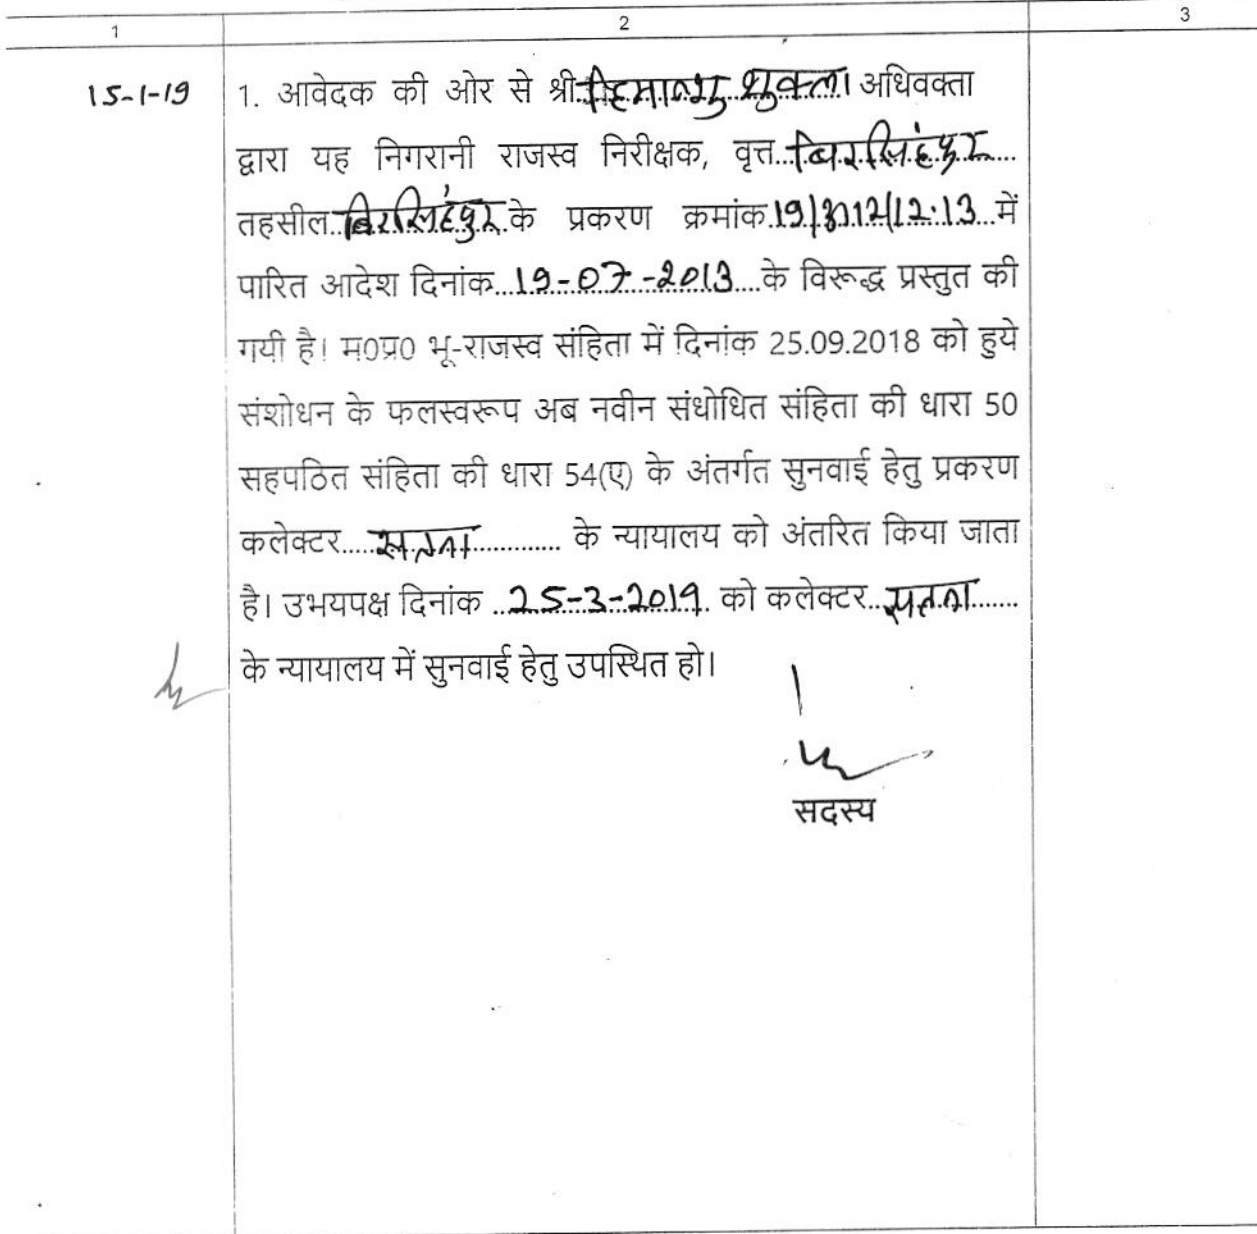 1 2 3
15-1-19 1. आवेदक की ओर से श्री हिमान्शु शुक्ला अधिवक्ता
द्वारा यह निगरानी राजस्व निरीक्षक, वृत्त...बिरसिंहपुर...
तहसील..बिरसिंहपुर.के प्रकरण क्रमांक.19/अ12/12.13..में
पारित आदेश दिनांक...19-07-2013....के विरूद्ध प्रस्तुत की
गयी है। म0प्र0 भू-राजस्व संहिता में दिनांक 25.09.2018 को हुये
संशोधन के फलस्वरूप अब नवीन संधोधित संहिता की धारा 50
सहपठित संहिता की धारा 54(ए) के अंतर्गत सुनवाई हेतु प्रकरण
कलेक्टर.....सतना............ के न्यायालय को अंतरित किया जाता
है। उभयपक्ष दिनांक ..25-3-2019. को कलेक्टर..सतना.......
के न्यायालय में सुनवाई हेतु उपस्थित हो।
सदस्य